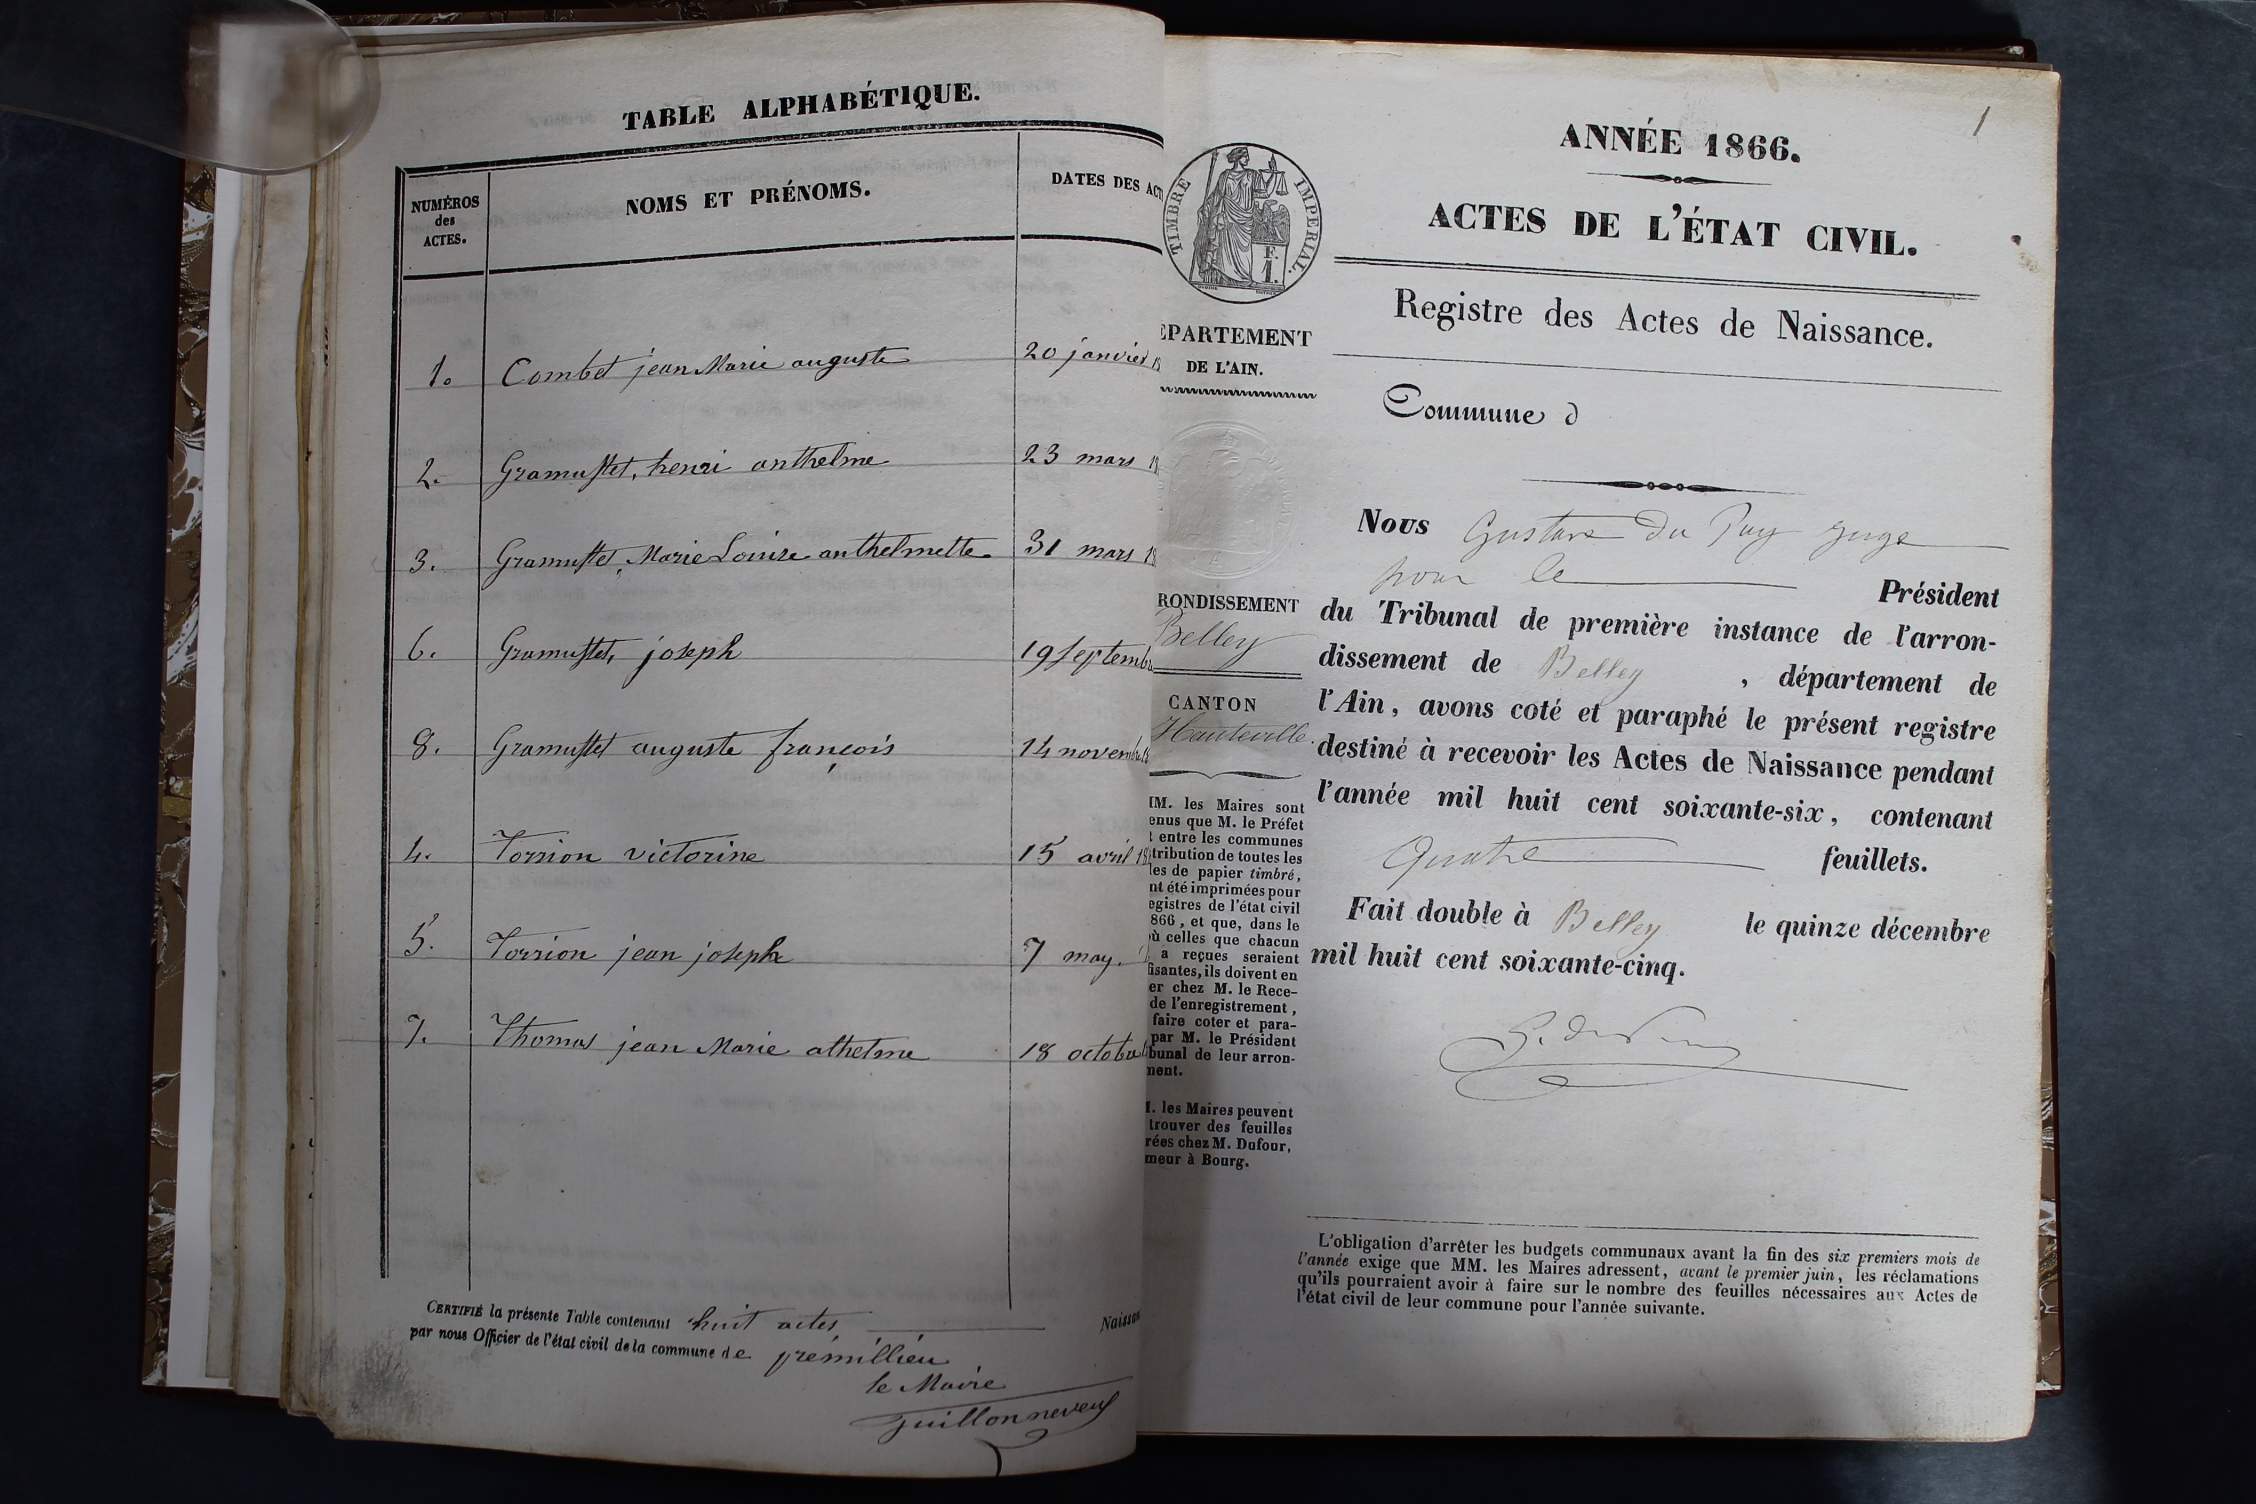 TABLE ALPHABÉTIQUE.
NUMÉROS
des
ACTES.
NOMS ET PRÉNOMS.
DATES DES ACT
1. Combet jean Marie auguste 20 janvier 1
2. Gramusset, henri anthelme 23 mars 18
3. Gramusset, Marie Louise anthelmette 31 mars 18
6. Gramusset, joseph 19 septembre
8. Gramusset auguste françois 14 novembre
4. Torrion victorine 15 avril 18
5. Torrion jean joseph 7 may.
7. Thomas jean Marie athelme 18 octobre
CERTIFIÉ la présente Table contenant huit actes Naissan
par nous Officier de l'état civil de la commune de prémillieu
le Maire
Guillon neveu
1
TIMBRE IMPERIAL.
F.
1.
ÉPARTEMENT
DE L'AIN.
RONDISSEMENT
Belley
CANTON
Hauteville.
IM. les Maires sont
enus que M. le Préfet
t entre les communes
tribution de toutes les
les de papier timbré,
nt été imprimées pour
egistres de l'état civil
866, et que, dans le
où celles que chacun
a reçues seraient
fisantes, ils doivent en
er chez M. le Rece-
de l'enregistrement,
faire coter et para-
par M. le Président
bunal de leur arron-
ment.
I. les Maires peuvent
trouver des feuilles
rées chez M. Dufour,
meur à Bourg.
ANNÉE 1866.
ACTES DE L'ÉTAT CIVIL.
Registre des Actes de Naissance.
Commune d
Nous Gustave Du Puy juge
pour le Président
du Tribunal de première instance de l'arron-
dissement de Belley , département de
l'Ain, avons coté et paraphé le présent registre
destiné à recevoir les Actes de Naissance pendant
l'année mil huit cent soixante-six, contenant
Quatre feuillets.
Fait double à Belley le quinze décembre
mil huit cent soixante-cinq.
G. du Puy
L'obligation d'arrêter les budgets communaux avant la fin des six premiers mois de
l'année exige que MM. les Maires adressent, avant le premier juin, les réclamations
qu'ils pourraient avoir à faire sur le nombre des feuilles nécessaires aux Actes de
l'état civil de leur commune pour l'année suivante.